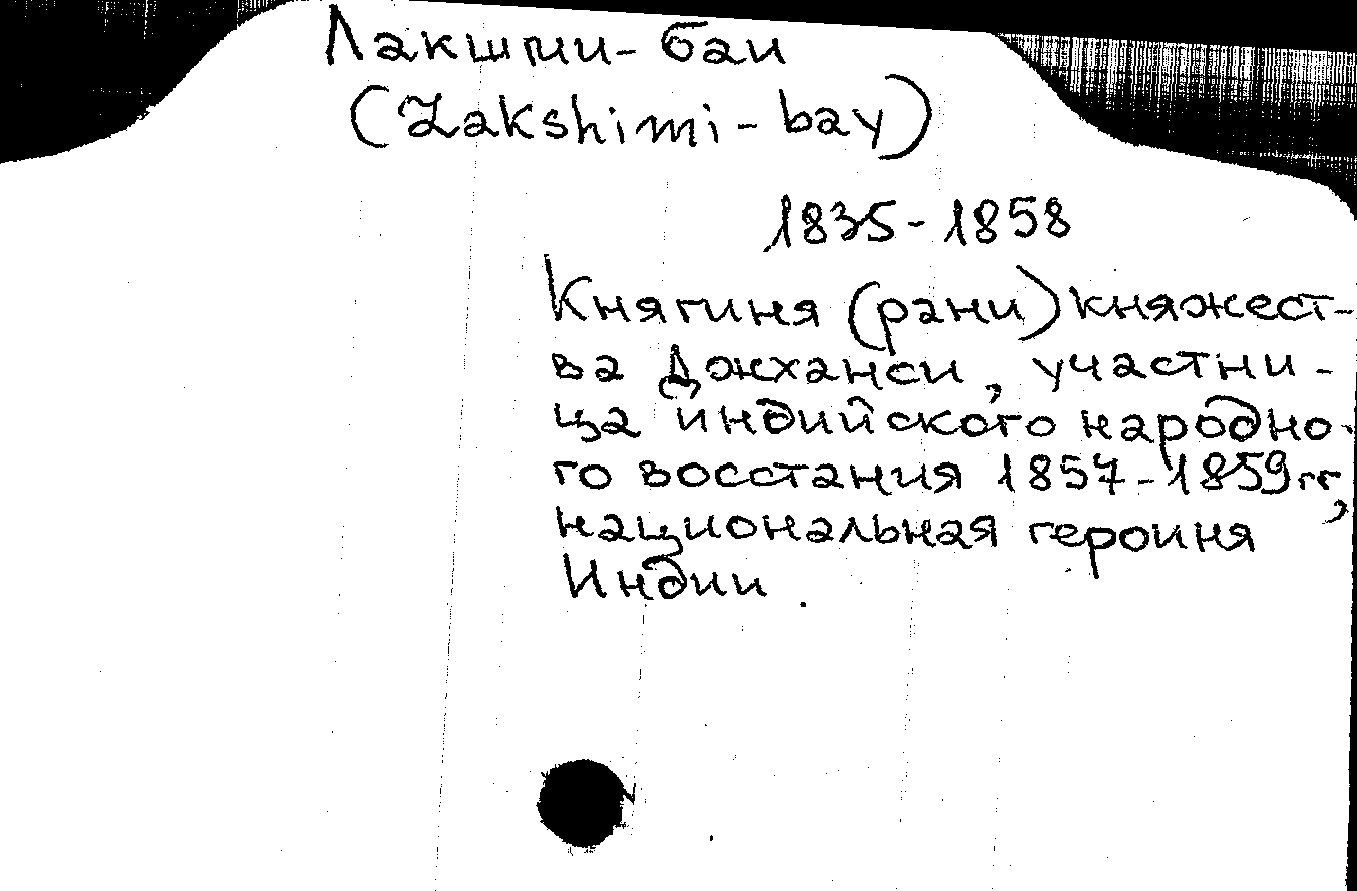 Лакшми-баи
(Lakshimi-bay)
1835-1858
Княгиня (рани) княжест-
ва Джханси, участни-
ца индийского народно-
го восстания 1857-1859гг,
национальная героиня
Индии.